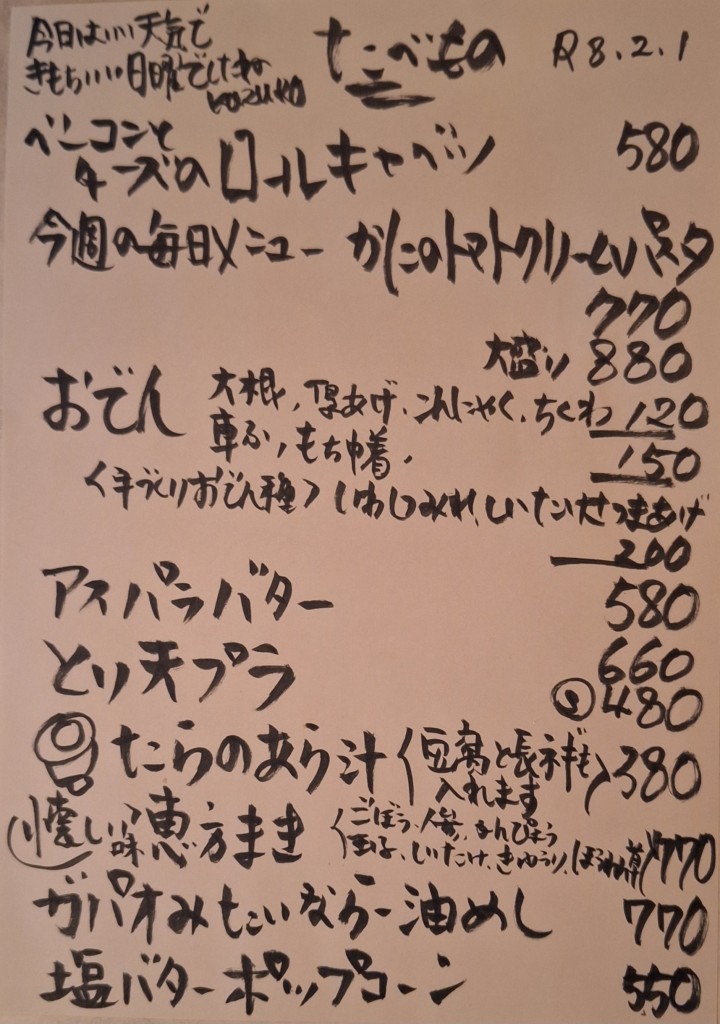 今日はいい天気で
きもちいい日曜でしたね
たべもの R8.2.1
ベーコンと
チーズのロールキャベツ 580
今週の毎日メニュー かにのトマトクリームパスタ
770
大盛り 880
おでん 大根、厚あげ、こんにゃく、ちくわ 120
車ふ、もち巾着、 150
〈手づくりおでん種〉 いわしつみれ、しいたけさつまあげ
200
アスパラバター 580
とり天プラ 660
480
たらのあら汁〈豆腐と長ネギも
入れます〉 380
懐しい味 恵方まき〈ごぼう、人参、かんぴょう
玉子、しいたけ、きゅうり、ほうれん草〉 770
ガパオみたいならー油めし 770
塩バターポップコーン 550